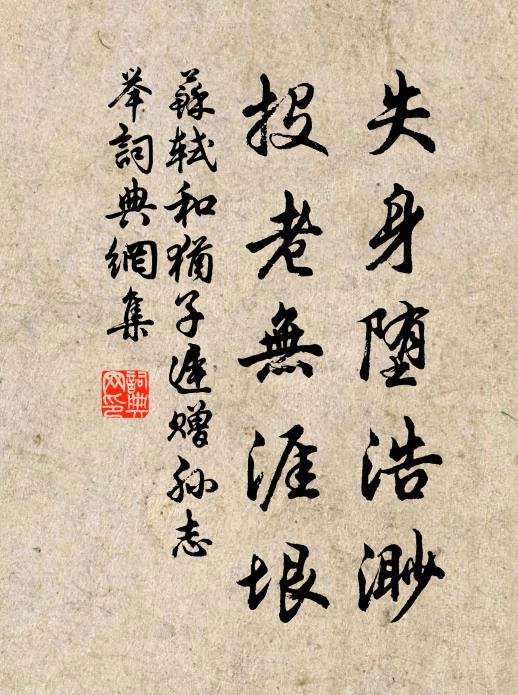 失身墮浩渺
投老無涯垠
蘇軾和猶子遲贈孫志
举詞典網集
詞典
网印